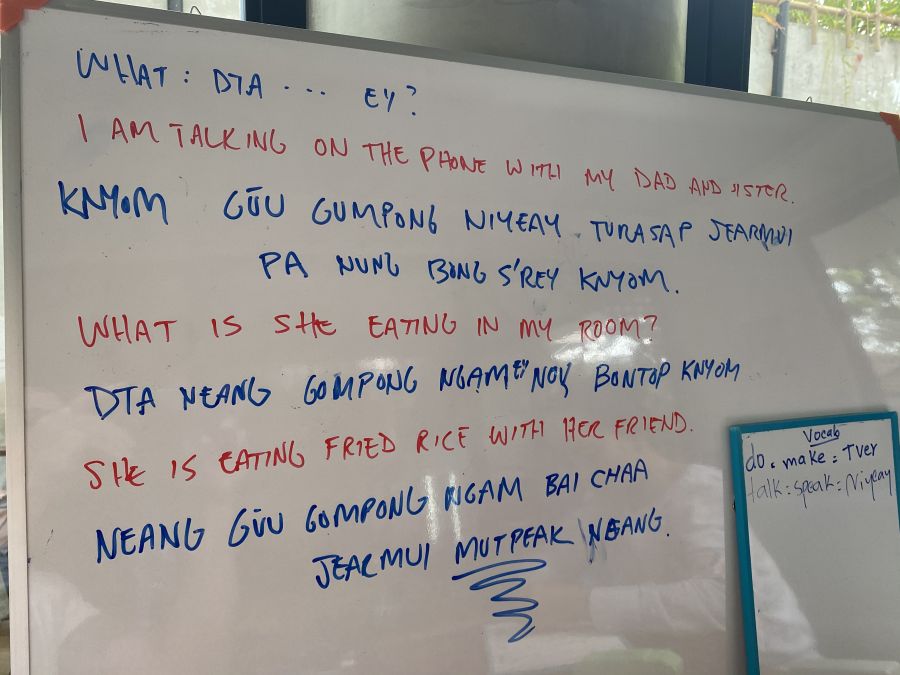 WHAT: DTA ... EY?
I AM TALKING ON THE PHONE WITH MY DAD AND SISTER.
KNYOM GŪU GUMPONG NIYEAY TURASAP JEARMUI
PA NUNG BONG S'REY KNYOM.
WHAT IS SHE EATING IN MY ROOM?
DTA NEANG GOMPONG NGAM EY NOV BONTOP KNYOM
SHE IS EATING FRIED RICE WITH HER FRIEND.
NEANG GŪU GOMPONG NGAM BAI CHAA
JEARMUI MUTPEAK NEANG.
Vocab
do. make = Tver
talk = speak = Niyeay